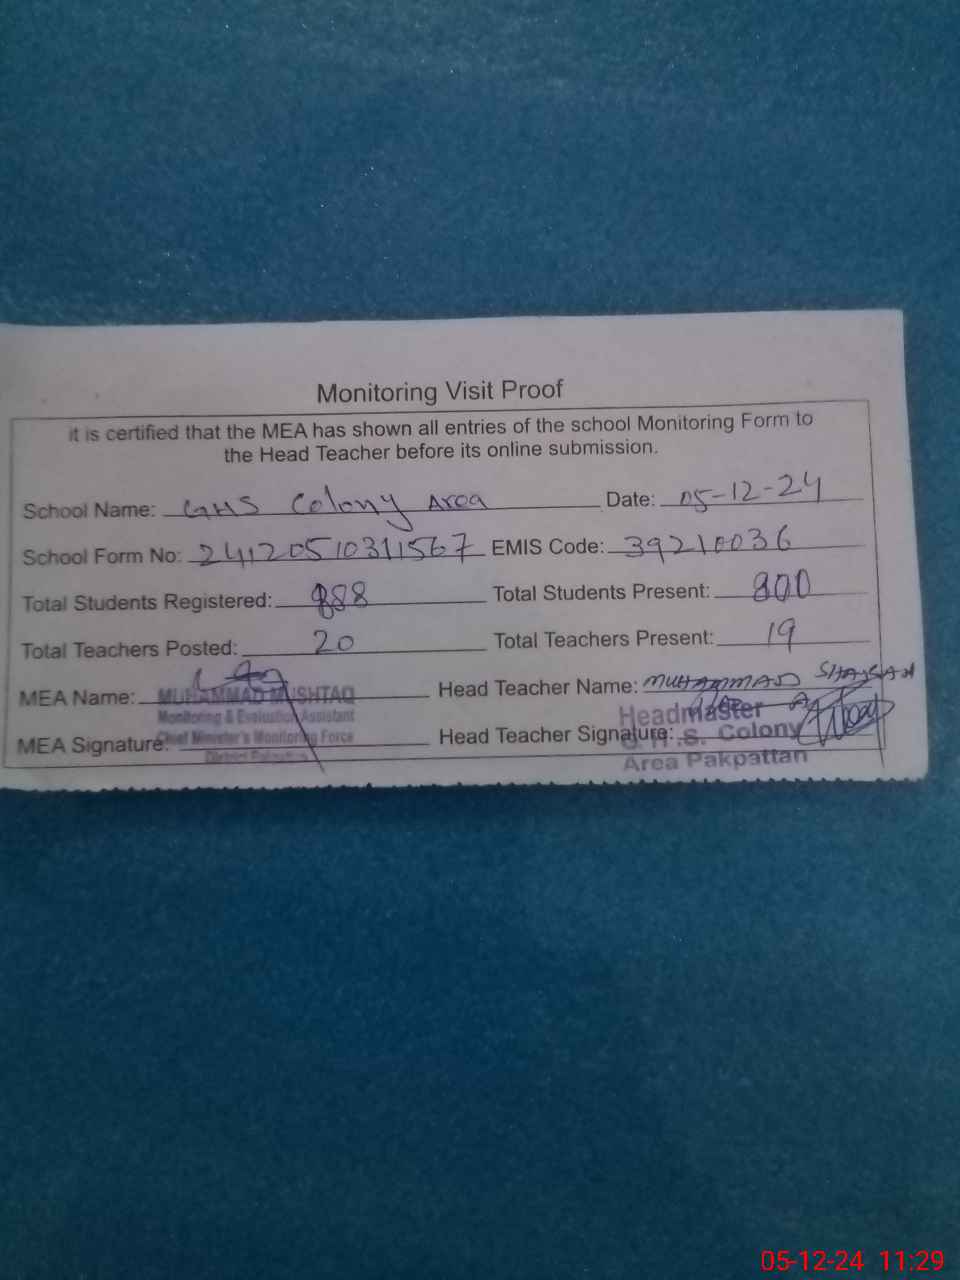 Monitoring Visit Proof
it is certified that the MEA has shown all entries of the school Monitoring Form to
the Head Teacher before its online submission.
School Name: GHS Colony Area Date: 05-12-24
School Form No: 24120510311567 EMIS Code: 39210036
Total Students Registered: 888 Total Students Present: 800
Total Teachers Posted: 20 Total Teachers Present: 19
MEA Name: MUHAMMAD MUSHTAQ Head Teacher Name: MUHAMMAD
Monitoring & Evaluation Assistant Headmaster
MEA Signature: Chief Minister's Monitoring Force Head Teacher Signature: G.H.S. Colony
District Pakpattan Area Pakpattan
05-12-24 11:29